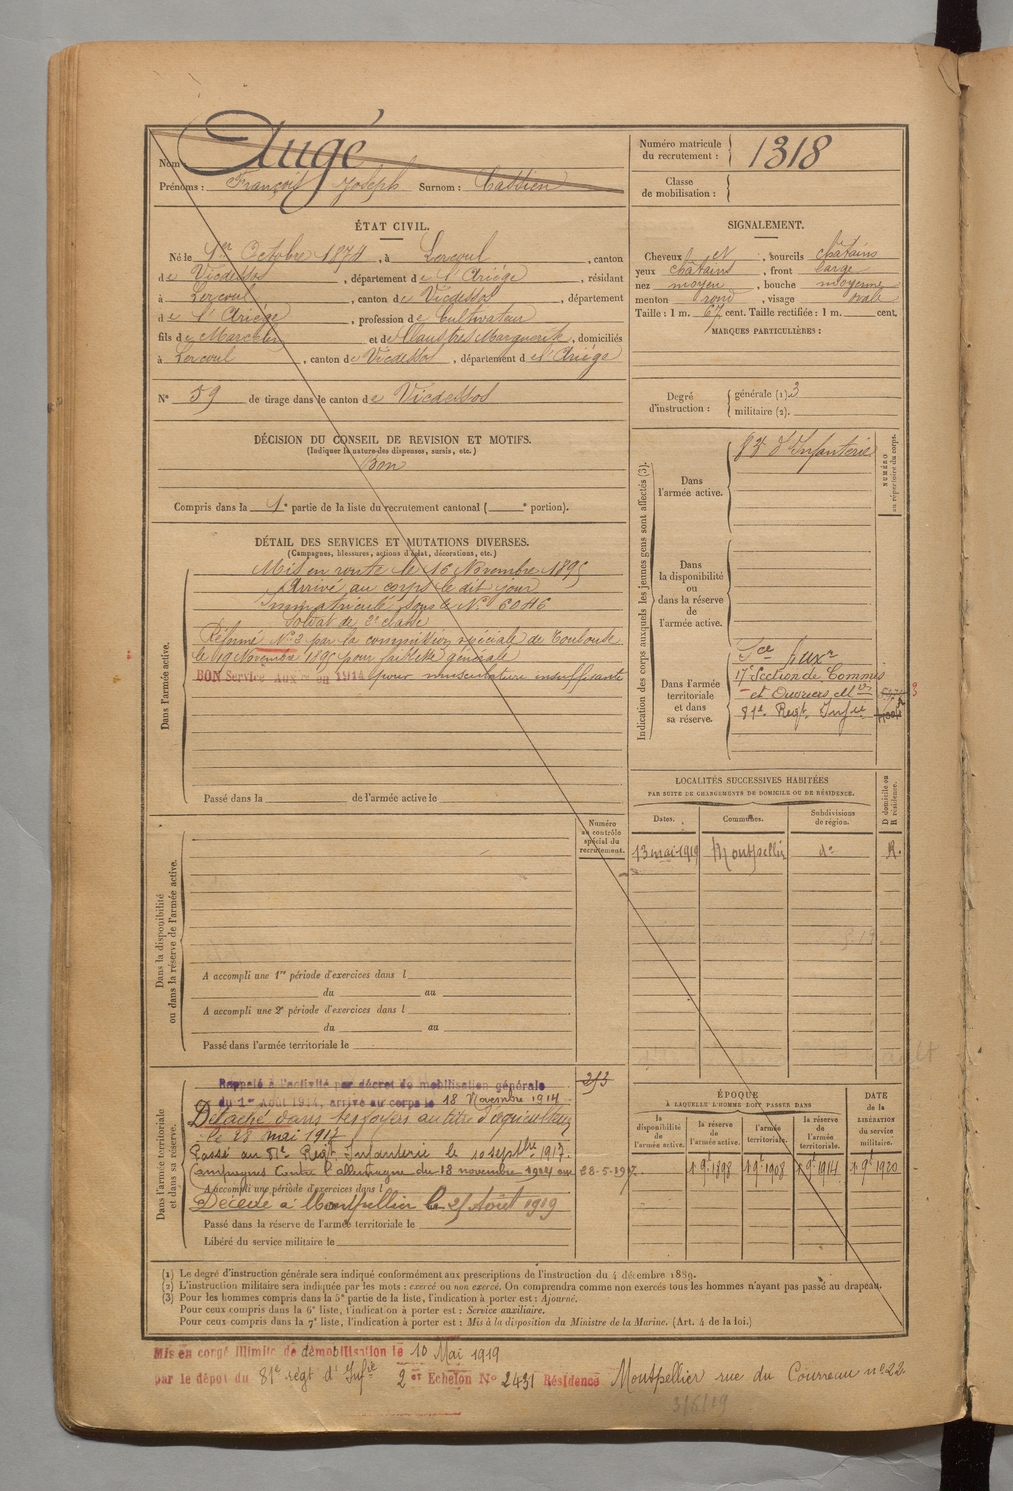 Nom : Augé
Prénoms : François Joseph Surnom : Cassien
Numéro matricule
du recrutement : 1318
Classe
de mobilisation :
ÉTAT CIVIL.
Né le 1er Octobre 1874, à Lercoul, canton
de Vicdessos, département de l'Ariège, résidant
à Lercoul, canton de Vicdessos, département
de l'Ariège, profession de Cultivateur
fils de Marcelin et de Marguerite, domiciliés
à Lercoul, canton de Vicdessos, département de l'Ariège
N° 59 de tirage dans le canton de Vicdessos
SIGNALEMENT.
Cheveux et, sourcils châtains
yeux châtains, front large
nez moyen, bouche moyenne
menton rond, visage ovale
Taille : 1 m. 67 cent. Taille rectifiée : 1 m. cent.
MARQUES PARTICULIÈRES :
Degré
d'instruction :
générale (1) 3
militaire (2).
DÉCISION DU CONSEIL DE REVISION ET MOTIFS.
(Indiquer la nature des dispenses, sursis, etc.)
Bon
Compris dans la 1e partie de la liste du recrutement cantonal ( e portion).
DÉTAIL DES SERVICES ET MUTATIONS DIVERSES.
(Campagnes, blessures, actions d'éclat, décorations, etc.)
Dans l'armée active.
Mis en route le 16 Novembre 1895
Arrivé au corps le dit jour
Immatriculé sous le N° 6046
Soldat de 2e classe
Réformé N° 2 par la commission spéciale de Toulouse
le 19 Novembre 1895 pour faiblesse générale
BON Service Auxre en 1914 (pour musculature insuffisante
Passé dans la de l'armée active le
Indication des corps auxquels les jeunes gens sont affectés (3).
NUMÉRO
au répertoire du corps.
Dans
l'armée active.
d'Infanterie
Dans
la disponibilité
ou
dans la réserve
de
l'armée active.
Dans l'armée
territoriale
et dans
sa réserve.
Sce Auxre
17e Section de Commis
et Ouvriers Mres
81e Regt Infie
LOCALITÉS SUCCESSIVES HABITÉES
PAR SUITE DE CHANGEMENTS DE DOMICILE OU DE RÉSIDENCE.
D domicile ou
R résidence.
Dates. Communes. Subdivisions
de région.
13 mai 1919 Montpellier do R.
Dans la disponibilité
ou dans la réserve de l'armée active.
Numéro
au contrôle
spécial du
recrutement.
A accompli une 1re période d'exercices dans l
du au
A accompli une 2e période d'exercices dans l
du au
Passé dans l'armée territoriale le
Dans l'armée territoriale
et dans sa réserve.
Rappelé à l'activité par décret de mobilisation générale
du 1er Août 1914, arrivé au corps le 18 Novembre 1914
Détaché dans ses foyers au titre d'agriculteur
le 28 mai 1917
Passé au 81e Regt Infanterie le 10 septbre 1917.
Campagnes Contre l'allemagne du 18 novembre 1914 au 28-5-1917.
A accompli une période d'exercices dans l
Décédé à Montpellier le 25 Août 1919
Passé dans la réserve de l'armée territoriale le
Libéré du service militaire le
ÉPOQUE
À LAQUELLE L'HOMME DOIT PASSER DANS
la
disponibilité
de
l'armée active.
la réserve
de
l'armée active.
l'armée
territoriale.
la réserve
de
l'armée
territoriale.
DATE
de la
LIBÉRATION
du service
militaire.
1 9e 1898 1 9e 1908 1 9e 1914 1 9e 1920
(1) Le degré d'instruction générale sera indiqué conformément aux prescriptions de l'instruction du 4 décembre 1889.
(2) L'instruction militaire sera indiquée par les mots : exercé ou non exercé. On comprendra comme non exercés tous les hommes n'ayant pas passé au drapeau.
(3) Pour les hommes compris dans la 5e partie de la liste, l'indication à porter est : Ajourné.
Pour ceux compris dans la 6e liste, l'indication à porter est : Service auxiliaire.
Pour ceux compris dans la 7e liste, l'indication à porter est : Mis à la disposition du Ministre de la Marine. (Art. 4 de la loi.)
Mis en congé illimité de démobilisation le 10 Mai 1919
par le dépôt du 81e régt d'Infie 2 er Echelon No 2431 Résidence Montpellier rue du Courreau no 22.
3/6/19